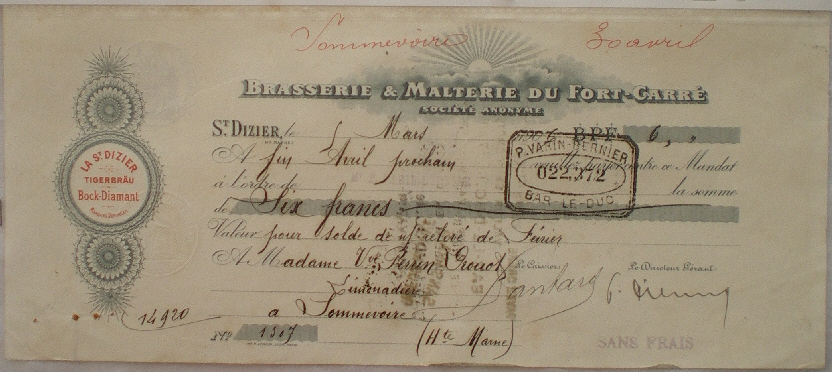 Sommevoire 30 avril
BRASSERIE & MALTERIE DU FORT-CARRÉ
SOCIÉTÉ ANONYME
ST DIZIER, le 5 Mars BPF 6,
A fin Avril prochain veuillez payer contre ce Mandat
à l'ordre de la somme
de Six francs
Valeur pour solde de n/ relevé de Février
A Madame Vve Perrin Le Caissier, Le Directeur Gérant
Limonadier
à Sommevoire
(Hte Marne)
14920
No 1307
P. VARIN-BERNIER
022372
BAR-LE-DUC
LA ST DIZIER
TIGERBRÄU
Bock-Diamant
SANS FRAIS